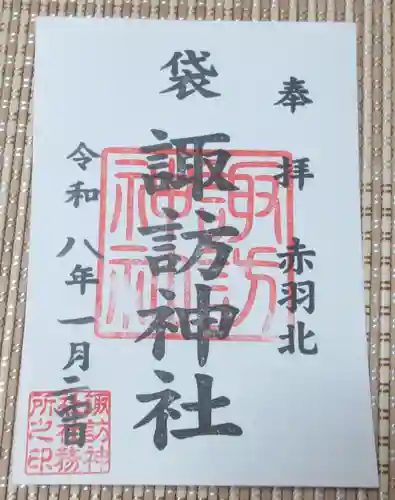 奉拝 赤羽北
袋 諏訪神社
令和八年一月二日
諏訪神社
諏訪神社務所之印